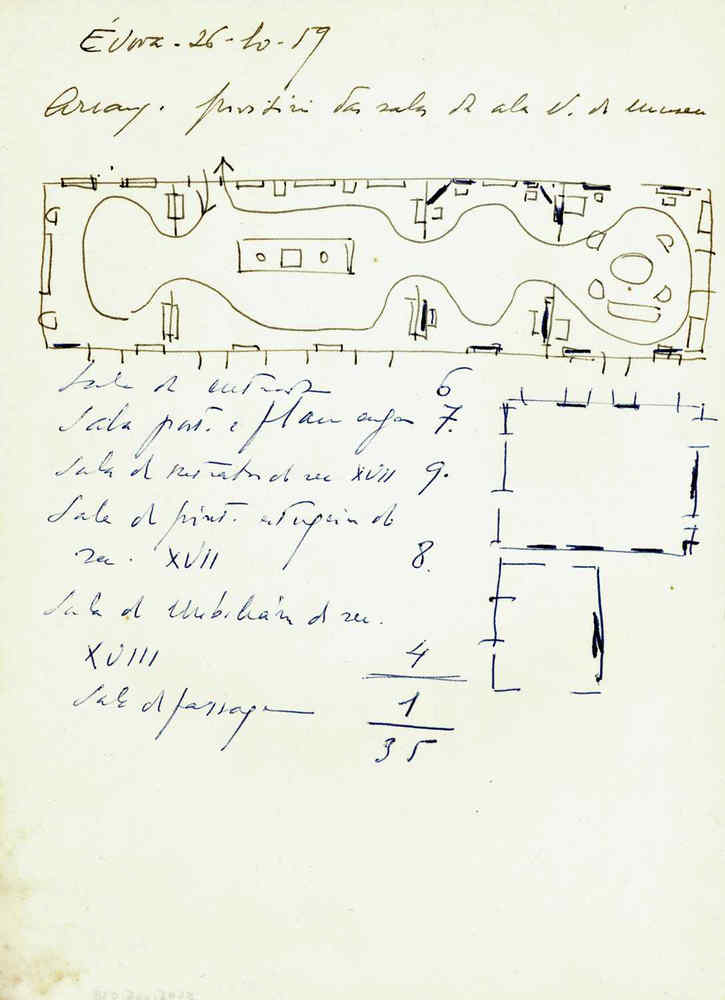 Évora - 26-10-59
Arranj. provisório das salas da ala N. do museu
Sala de entrada 6
Sala port. e flam 7.
Sala de retratos do sec XVII 9.
Sala de pint. do
sec. XVII 8.
Sala de Mobiliário do sec.
XVIII 4
Sala de passagem 1
35